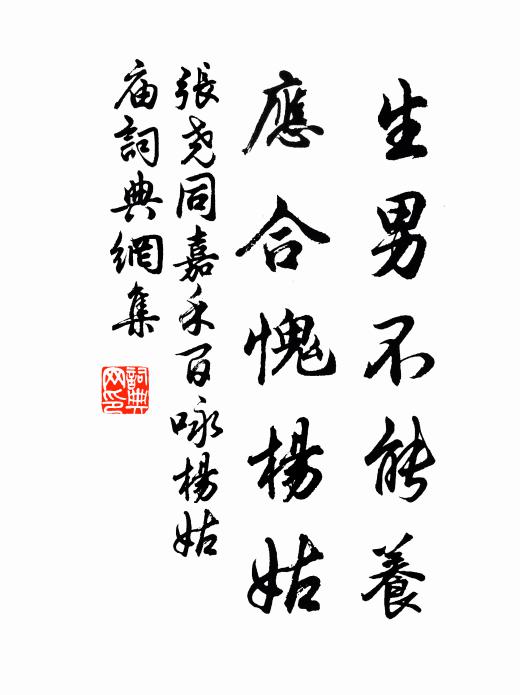 生男不能養
應合愧楊姑
張堯同嘉禾百咏楊姑
庙詞典網集
詞典
网印